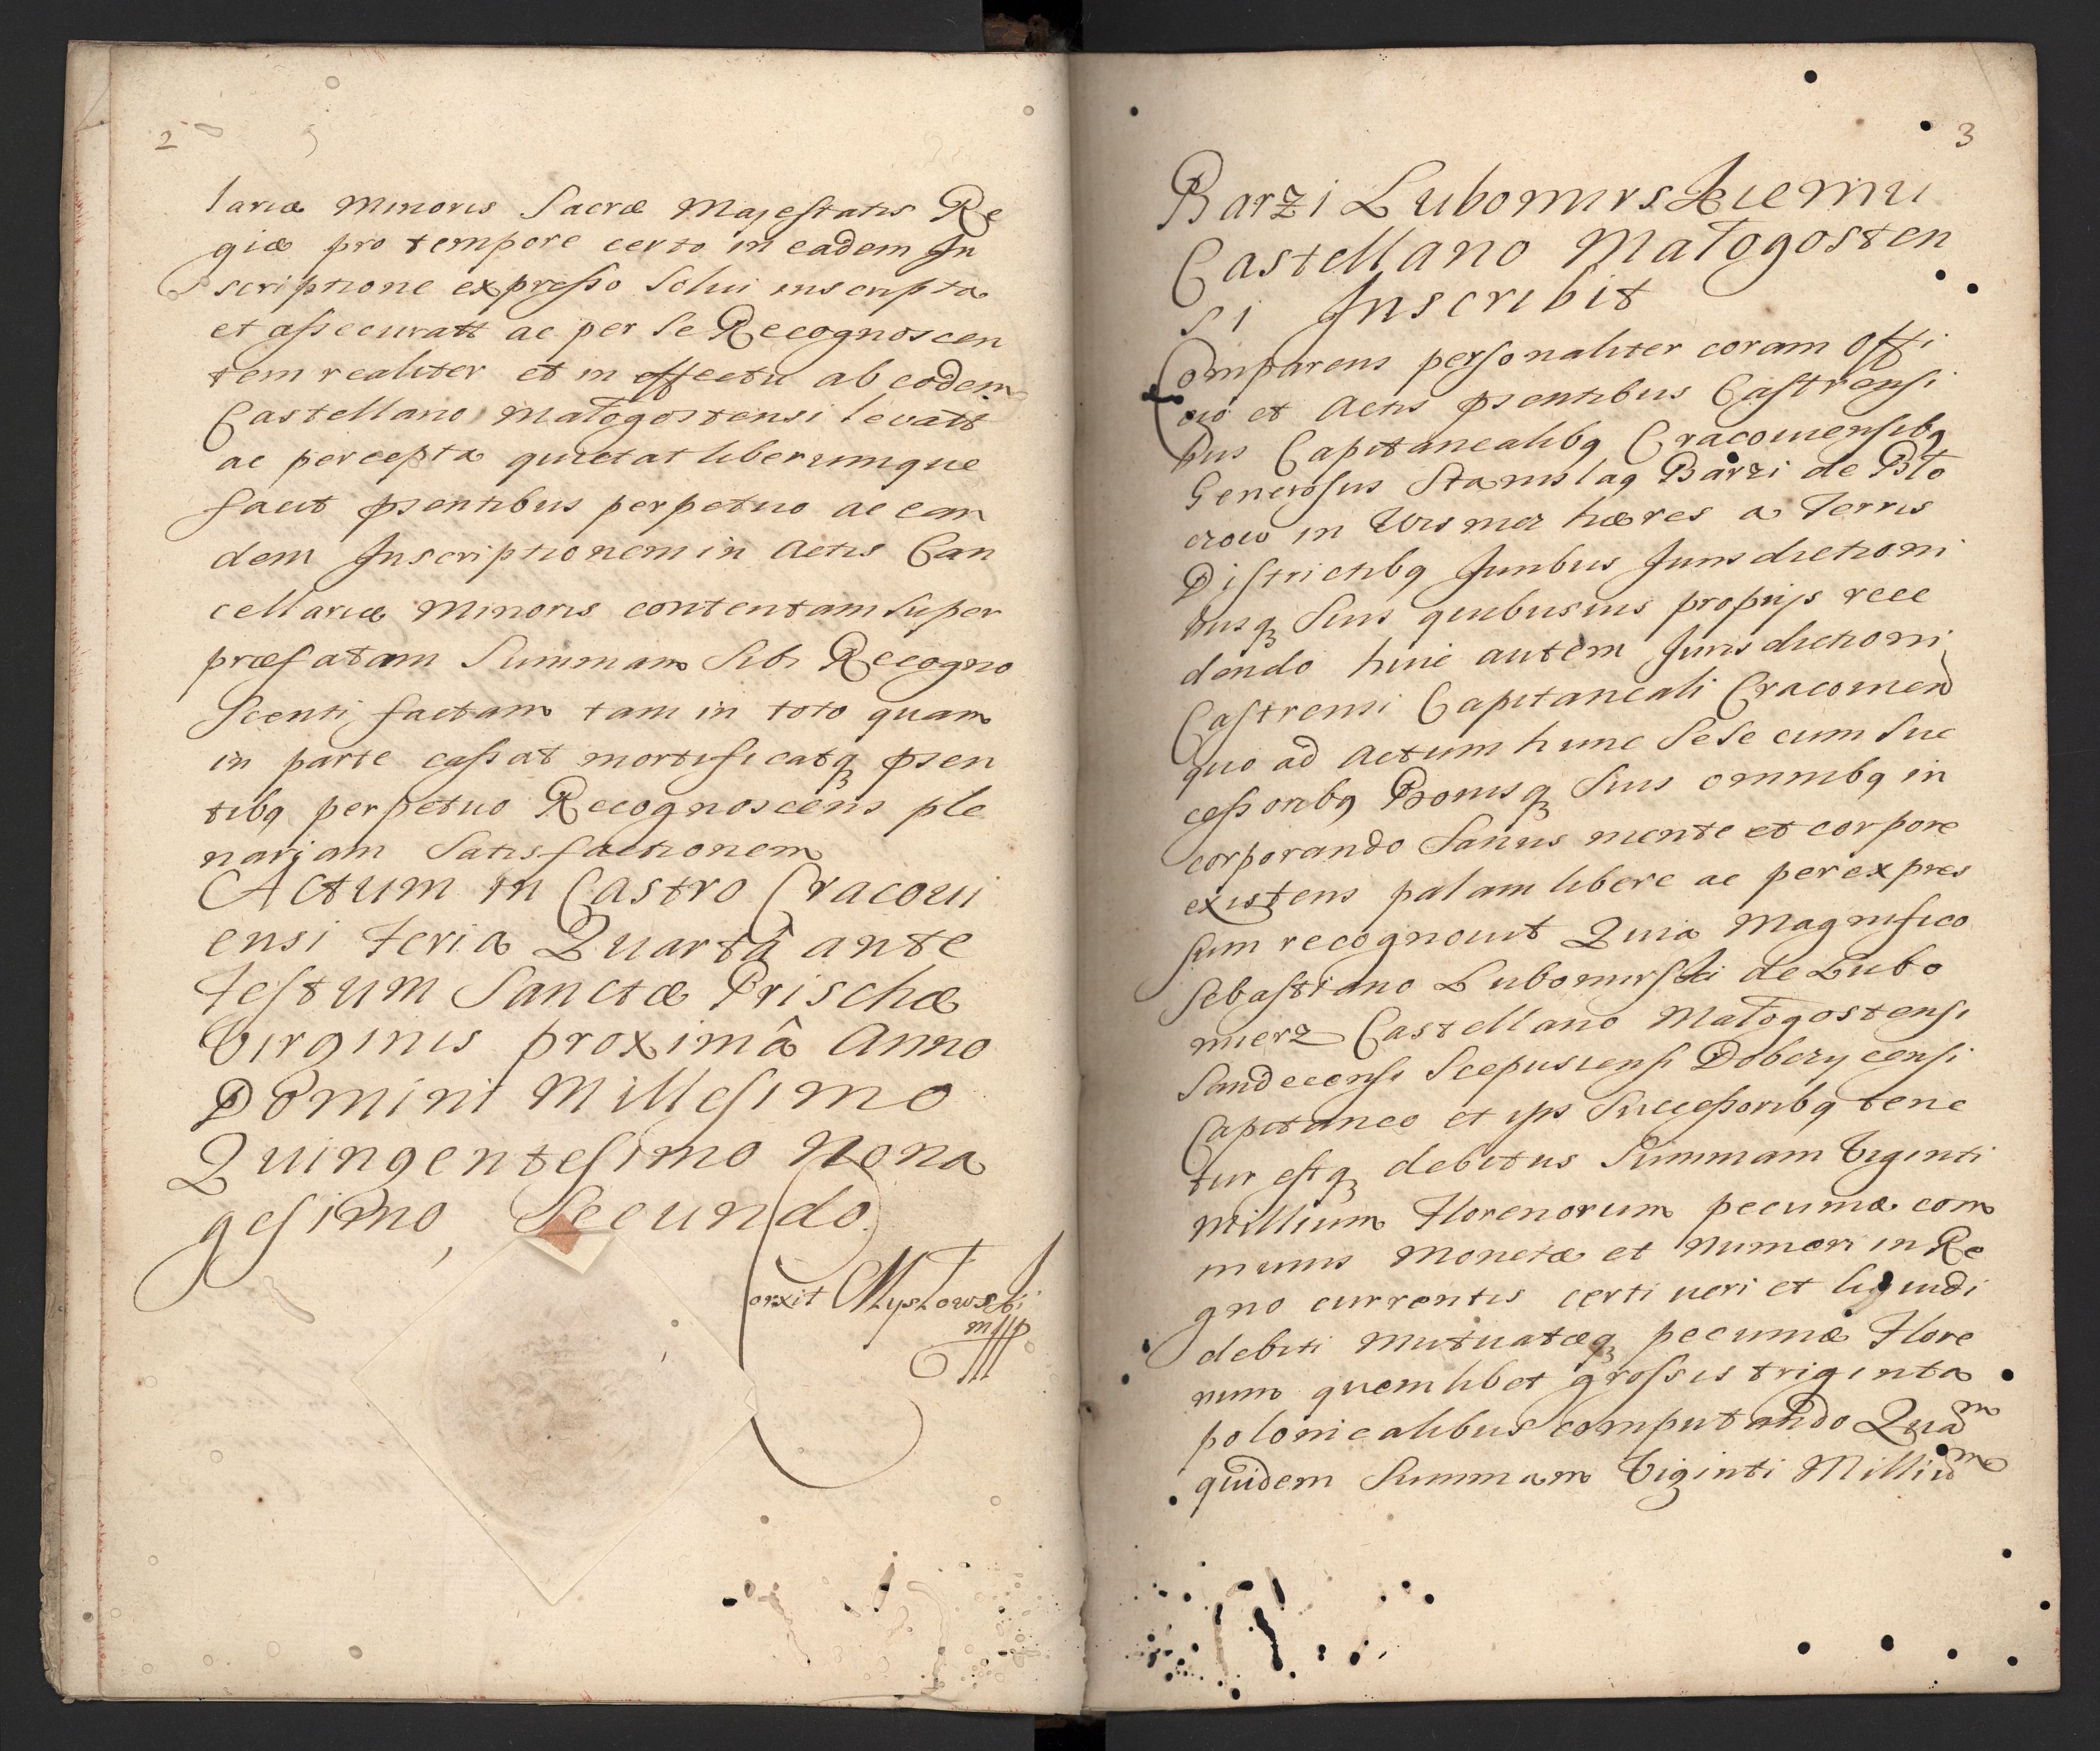 2
lariæ Minoris Sacræ Majestatis Re
giæ pro tempore certo in eadem In
scriptione expresso Solui inscripta
et assecuratt ac per Se Recognoscen
tem realiter et in effectu ab eodem
Castellano Małogostensi levatt
ac percepta quietat liberumque
facit pñsentibus perpetuo ac ean
dem Inscriptionem in Actis Can
cellariæ Minoris contentam Super
præfatam Summam Sibi Recogno
scenti factam tam in toto quam
in parte cassat mortificatq3 psen
tibq perpetuo Recognoscens ple
nariam Satisfactionem
Actum in Castro Cracovi
ensi Feria Quartâ ante
Festum Sanctæ Prischæ
Virginis proximâ Anno
Domini Millesimo
Quingentesimo Nona
gesimo, Secundo.
orxit Mysłowski
mpp
3
Barzi Lubomirskiemu
Castellano Małogosten
si Inscribit
Comparens personaliter coram Offi
cio et Actis psentibus Castrensi
bus Capitanealibq Cracouiensibq
Generosus Stanislaq Barzi de Bło
zow in Wismez hæres a Terris
Districtibq Juribus Jurisdictioni
busq3 Suis quibusuis proprijs rece
dendo huic autem Jurisdictioni
Castrensi Capitaneali Cracouien
quo ad Actum hunc Sese cum Suc
cessoribq Bonisq3 Suis omnibq in
corporando Sanus mente et corpore
existens palam libere ac per expres
sum recognouit Quia Magnifico
Sebastiano Lubomirski de Lubo
mierz Castellano Małogostensi
Sandecensi Scepusiensi Dobczycensi
Capitaneo et ipś Successoribq tene
tur estq3 debitus Summam Viginti
Millium Florenorum pecuniæ com
munis Monetæ et Numeri in Re
gno currentis certi ueri et liquidi
debiti Mutuatæq3 pecuniæ Flore
num quemlibet grossis triginta
polonicalibus computando Quam
quidem Summam Viginti Millium